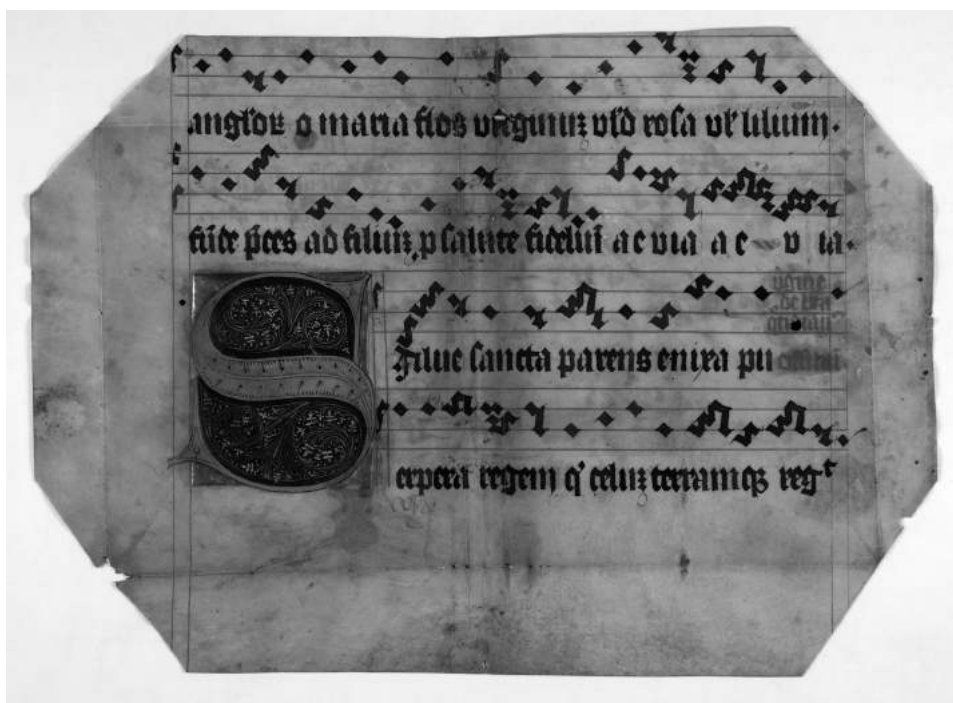 anglorꝝ o maria flos virginuꝫ vlꝰd rosa vlꝰ lilium.
fūde p̄ces ad filiuꝫ p salute fideliū a e v ia a e v ia.
Salue sancta parens enixa pu
erpera regem qꝰ celuꝫ terramqꝫ regᵗ